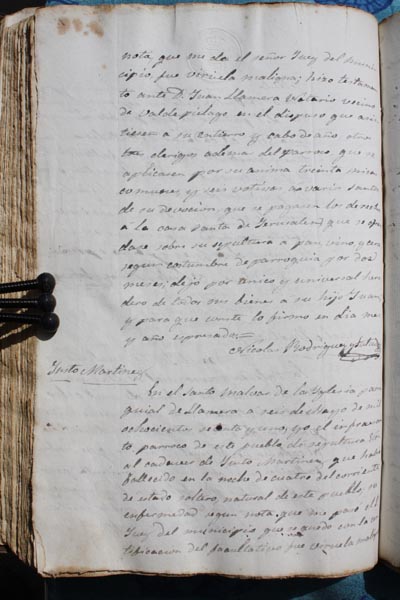 nota, que me da el señor Juez del muni-
cipio, fue viruela maligna; hizo testamen-
to ante D. Juan Llamera Notario vecino
de Valdepielago en el dispuso que asis-
tiesen a su entierro y cabo de año otros
clerigos ademas del parroco que se
aplicasen por su anima treinta misas
comunes, y seis votivas a varios santos
de su devocion, que se pagasen los derechos
a la casa santa de Jerusalen, y que se
sobre su sepultura a pan, vino, y cera
segun costumbre de parroquia por dos
meses, dejó por unico y universal here-
dero de todos sus bienes a su hijo Juan,
y para que conste lo firmo en dia mes
y año expresado =
Nicolas Rodriguez
Justo Martinez
En el Santo de la Yglesia parro-
quial de Llamera a seis de Mayo de mil
ochocientos setenta y uno, yo el infrascri-
to parroco de este pueblo, di sepultura
al cadaver de Justo Martinez, que habia
fallecido en la noche de cuatro del corriente
de estado soltero, natural de este pueblo, su
enfermedad segun nota que me pasó el S.
Juez del municipio que segun la cer-
tificacion del facultativo fue viruela maligna